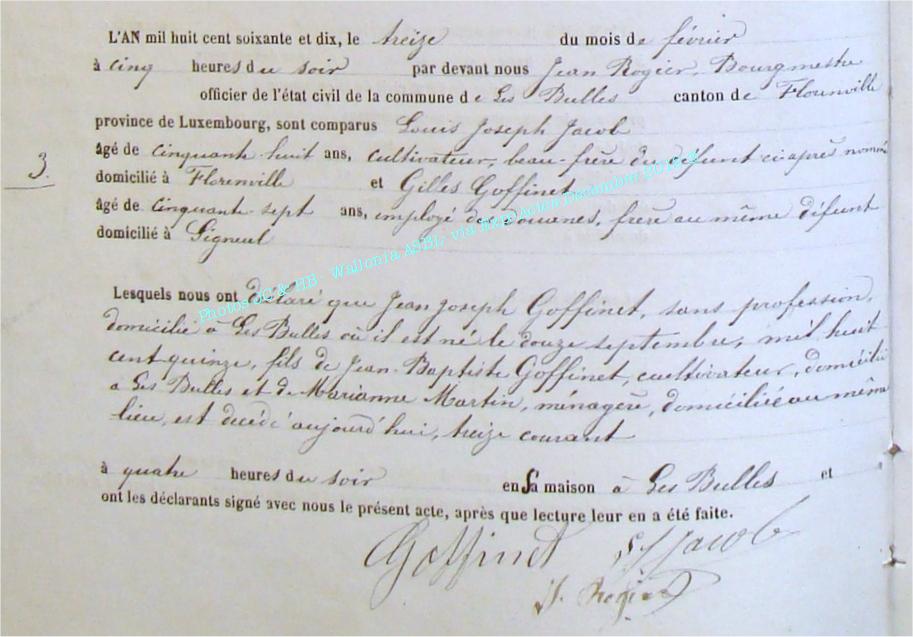 L'AN mil huit cent soixante et dix, le treize du mois de février
à cinq heures du soir par devant nous Jean Rogier, Bourgmestre
officier de l'état civil de la commune de Les Bulles canton de Florenville
province de Luxembourg, sont comparus Louis Joseph Jacob
âgé de cinquante huit ans, cultivateur, beau-frère du défunt ci après nommé
3.
domicilié à Florenville et Gilles Goffinet
âgé de cinquante-sept ans, employé des douanes, frère au même défunt
domicilié à Signeul
Photos JC & HB - Wallonia ASBL, via ExpoActes December
Lesquels nous ont déclaré que Jean Joseph Goffinet, sans profession,
domicilié à Les Bulles où il est né le douze septembre, mil huit
cent quinze, fils de Jean-Baptiste Goffinet, cultivateur, domicilié
à Les Bulles et de Marianne Martin, ménagère, domiciliée au même
lieu, est décédé aujourd'hui, treize courant
à quatre heures du soir en sa maison à Les Bulles et
ont les déclarants signé avec nous le présent acte, après que lecture leur en a été faite.
Goffinet Jacob
J. Rogier